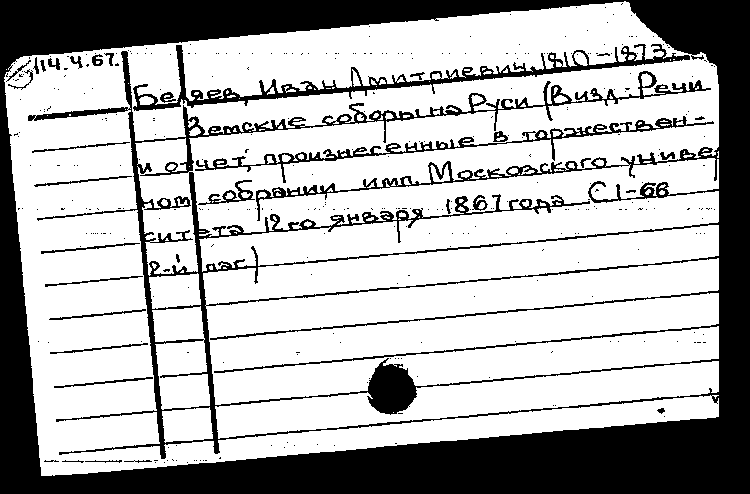 14.4.67.
Беляев, Иван Дмитриевич, 1810-1873.
Земские соборы на Руси (В изд.: Речи
и отчет, произнесенные в торжествен-
ном собрании имп. Московского универ
ситета 12го января 1867 года С 1-66
2-й паг.)